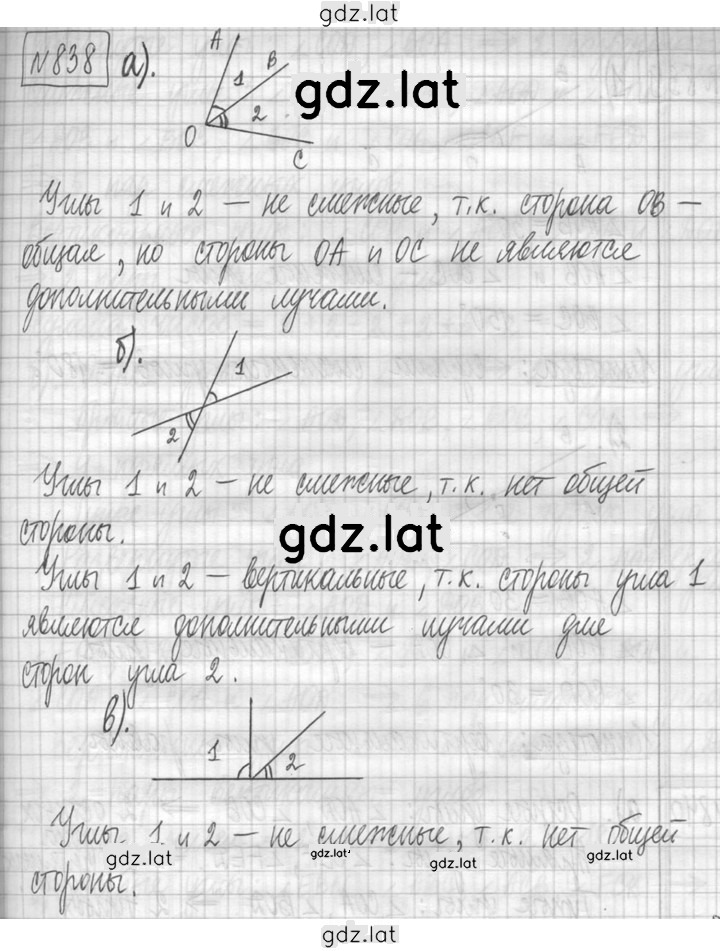 gdz.lat
N838 а).
A
1
B
gdz.lat
2
O
C
Углы 1 и 2 – не смежные, т.к. сторона OB –
общая, но стороны OA и OC не являются
дополнительными лучами.
б).
1
2
Углы 1 и 2 – не смежные, т.к. нет общей
стороны.
gdz.lat
Углы 1 и 2 – вертикальные, т.к. стороны угла 1
являются дополнительными лучами для
сторон угла 2.
в).
1
2
Углы 1 и 2 – не смежные, т.к. нет общей
gdz.lat gdz.lat gdz.lat gdz.lat
стороны.
gdz.lat